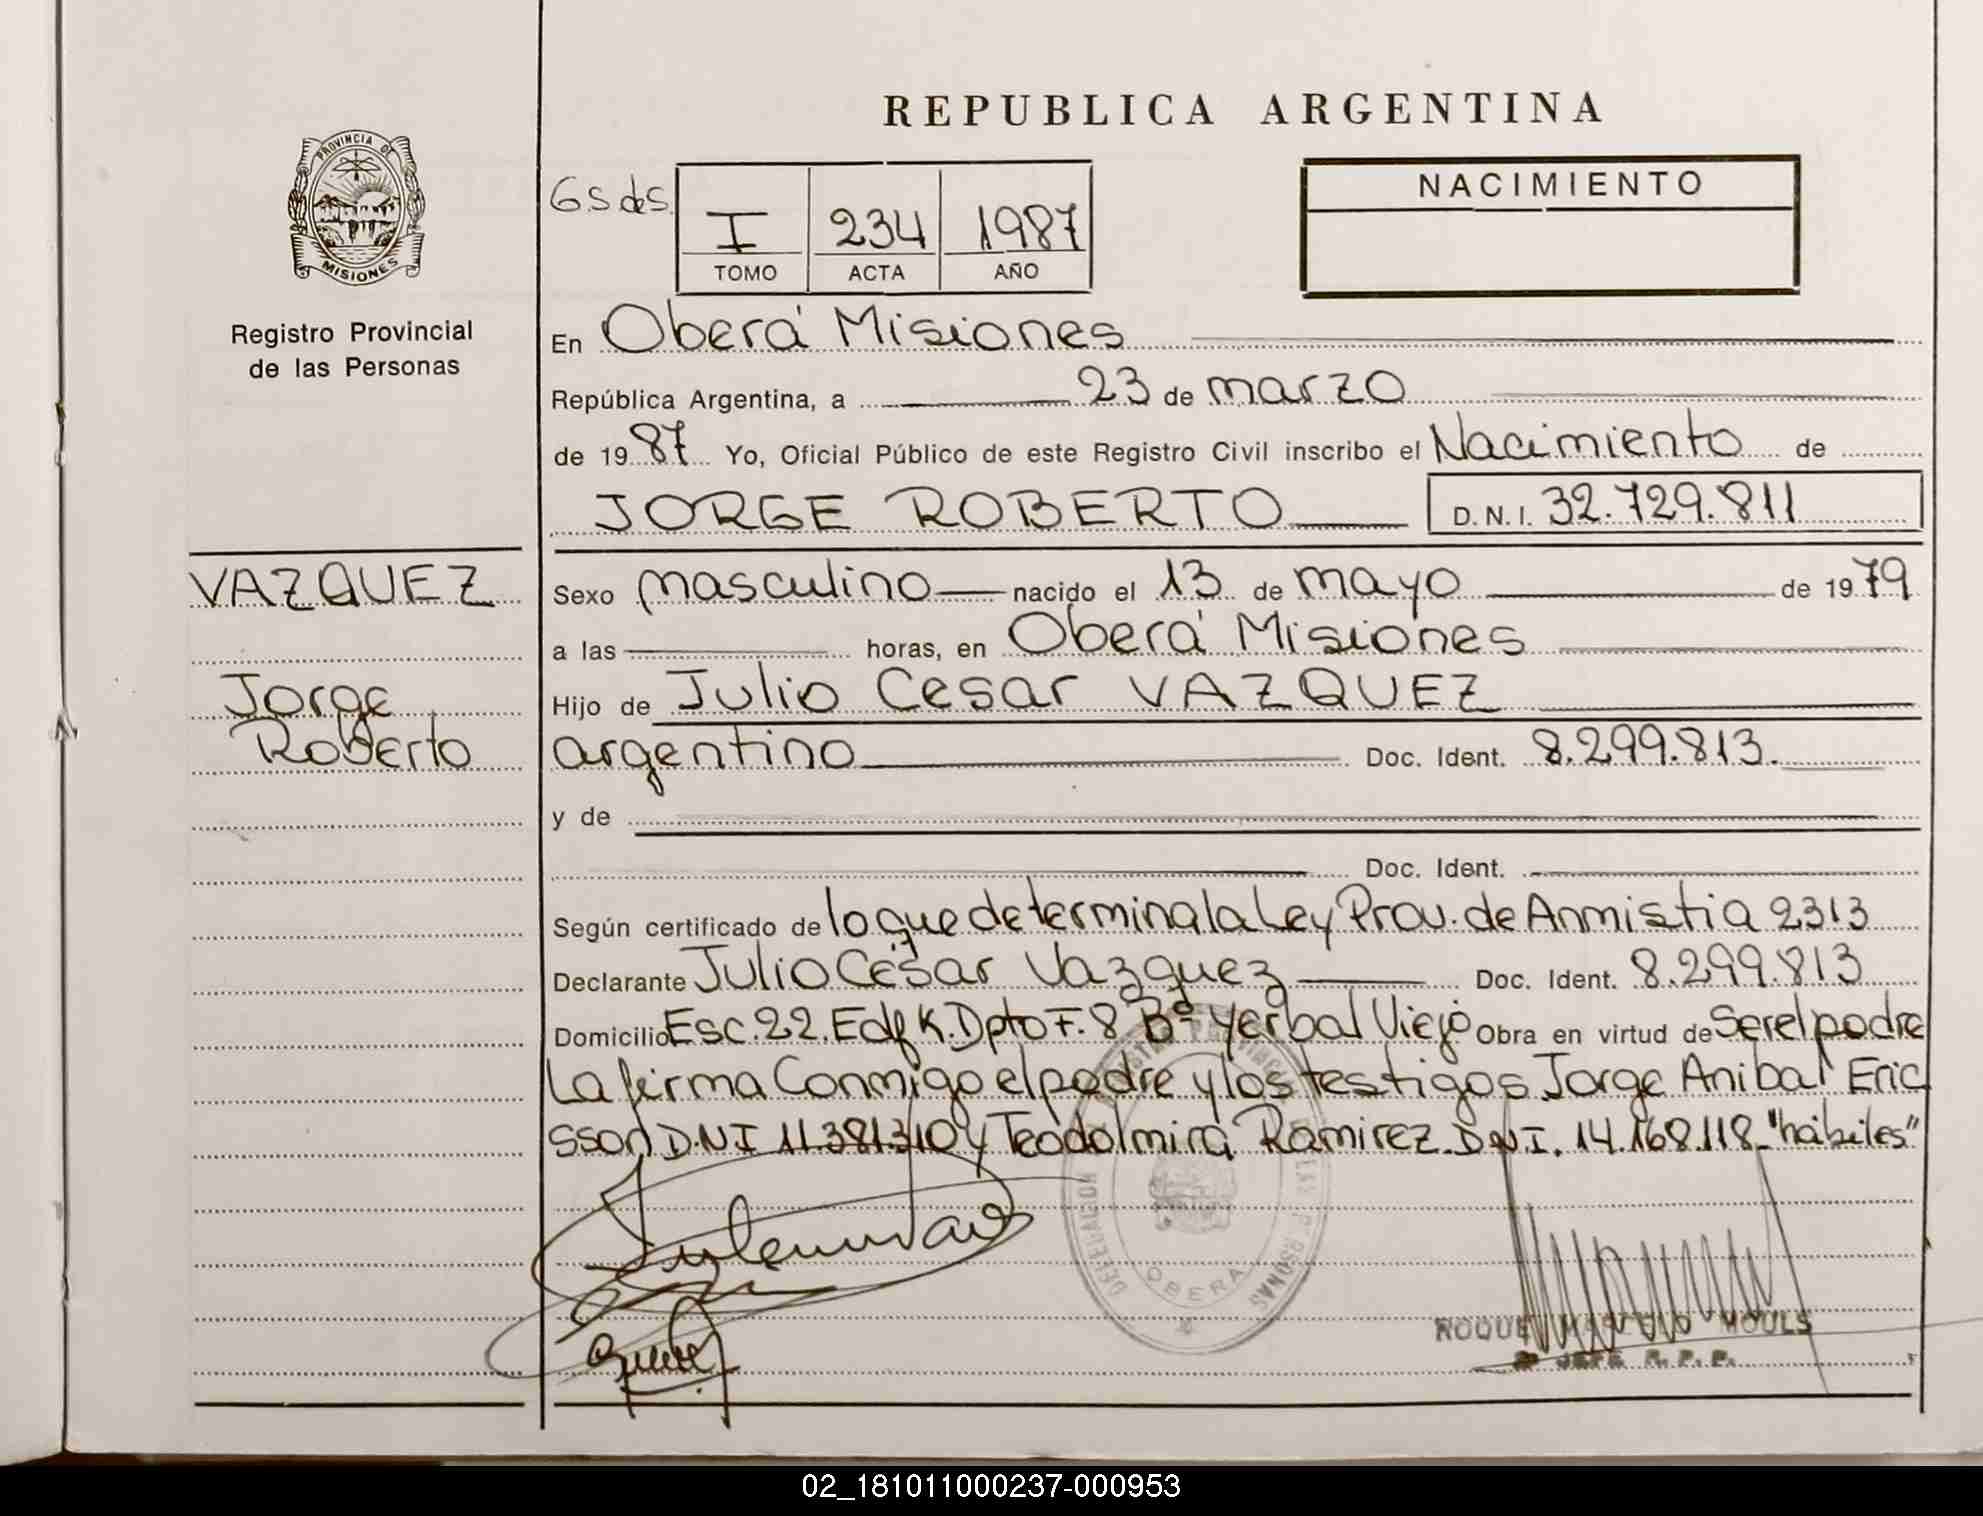 REPUBLICA ARGENTINA
PROVINCIA DE
MISIONES
Registro Provincial
de las Personas
I 234 1987
TOMO ACTA AÑO
NACIMIENTO
En Oberá Misiones
República Argentina, a 23 de marzo
de 1987 Yo, Oficial Público de este Registro Civil inscribo el Nacimiento de
JORGE ROBERTO D.N.I. 32.729.811
VAZQUEZ
Jorge
Roberto
Sexo masculino nacido el 13 de mayo de 1979
a las horas, en Oberá Misiones
Hijo de Julio Cesar VAZQUEZ
argentino Doc. Ident. 8.299.813.
y de
Doc. Ident.
Según certificado de lo que determina la Ley Prov. de Anmistia 2313
Declarante Julio César Vazquez Doc. Ident. 8.299.813
Domicilio Esc. 22. Edf K. Dpto F. 8 Bº Yerbal Viejo Obra en virtud de Ser el padre
La firma Conmigo el padre y los testigos Jorge Anibal Eric
sson D.N.I 11.381310 y Teodolmira Ramirez. D.N.I. 14.168.118 "hábiles"
DELEGACION
OBERA
ROQUE MOULS
JEFE R. P. P.
02_181011000237-000953